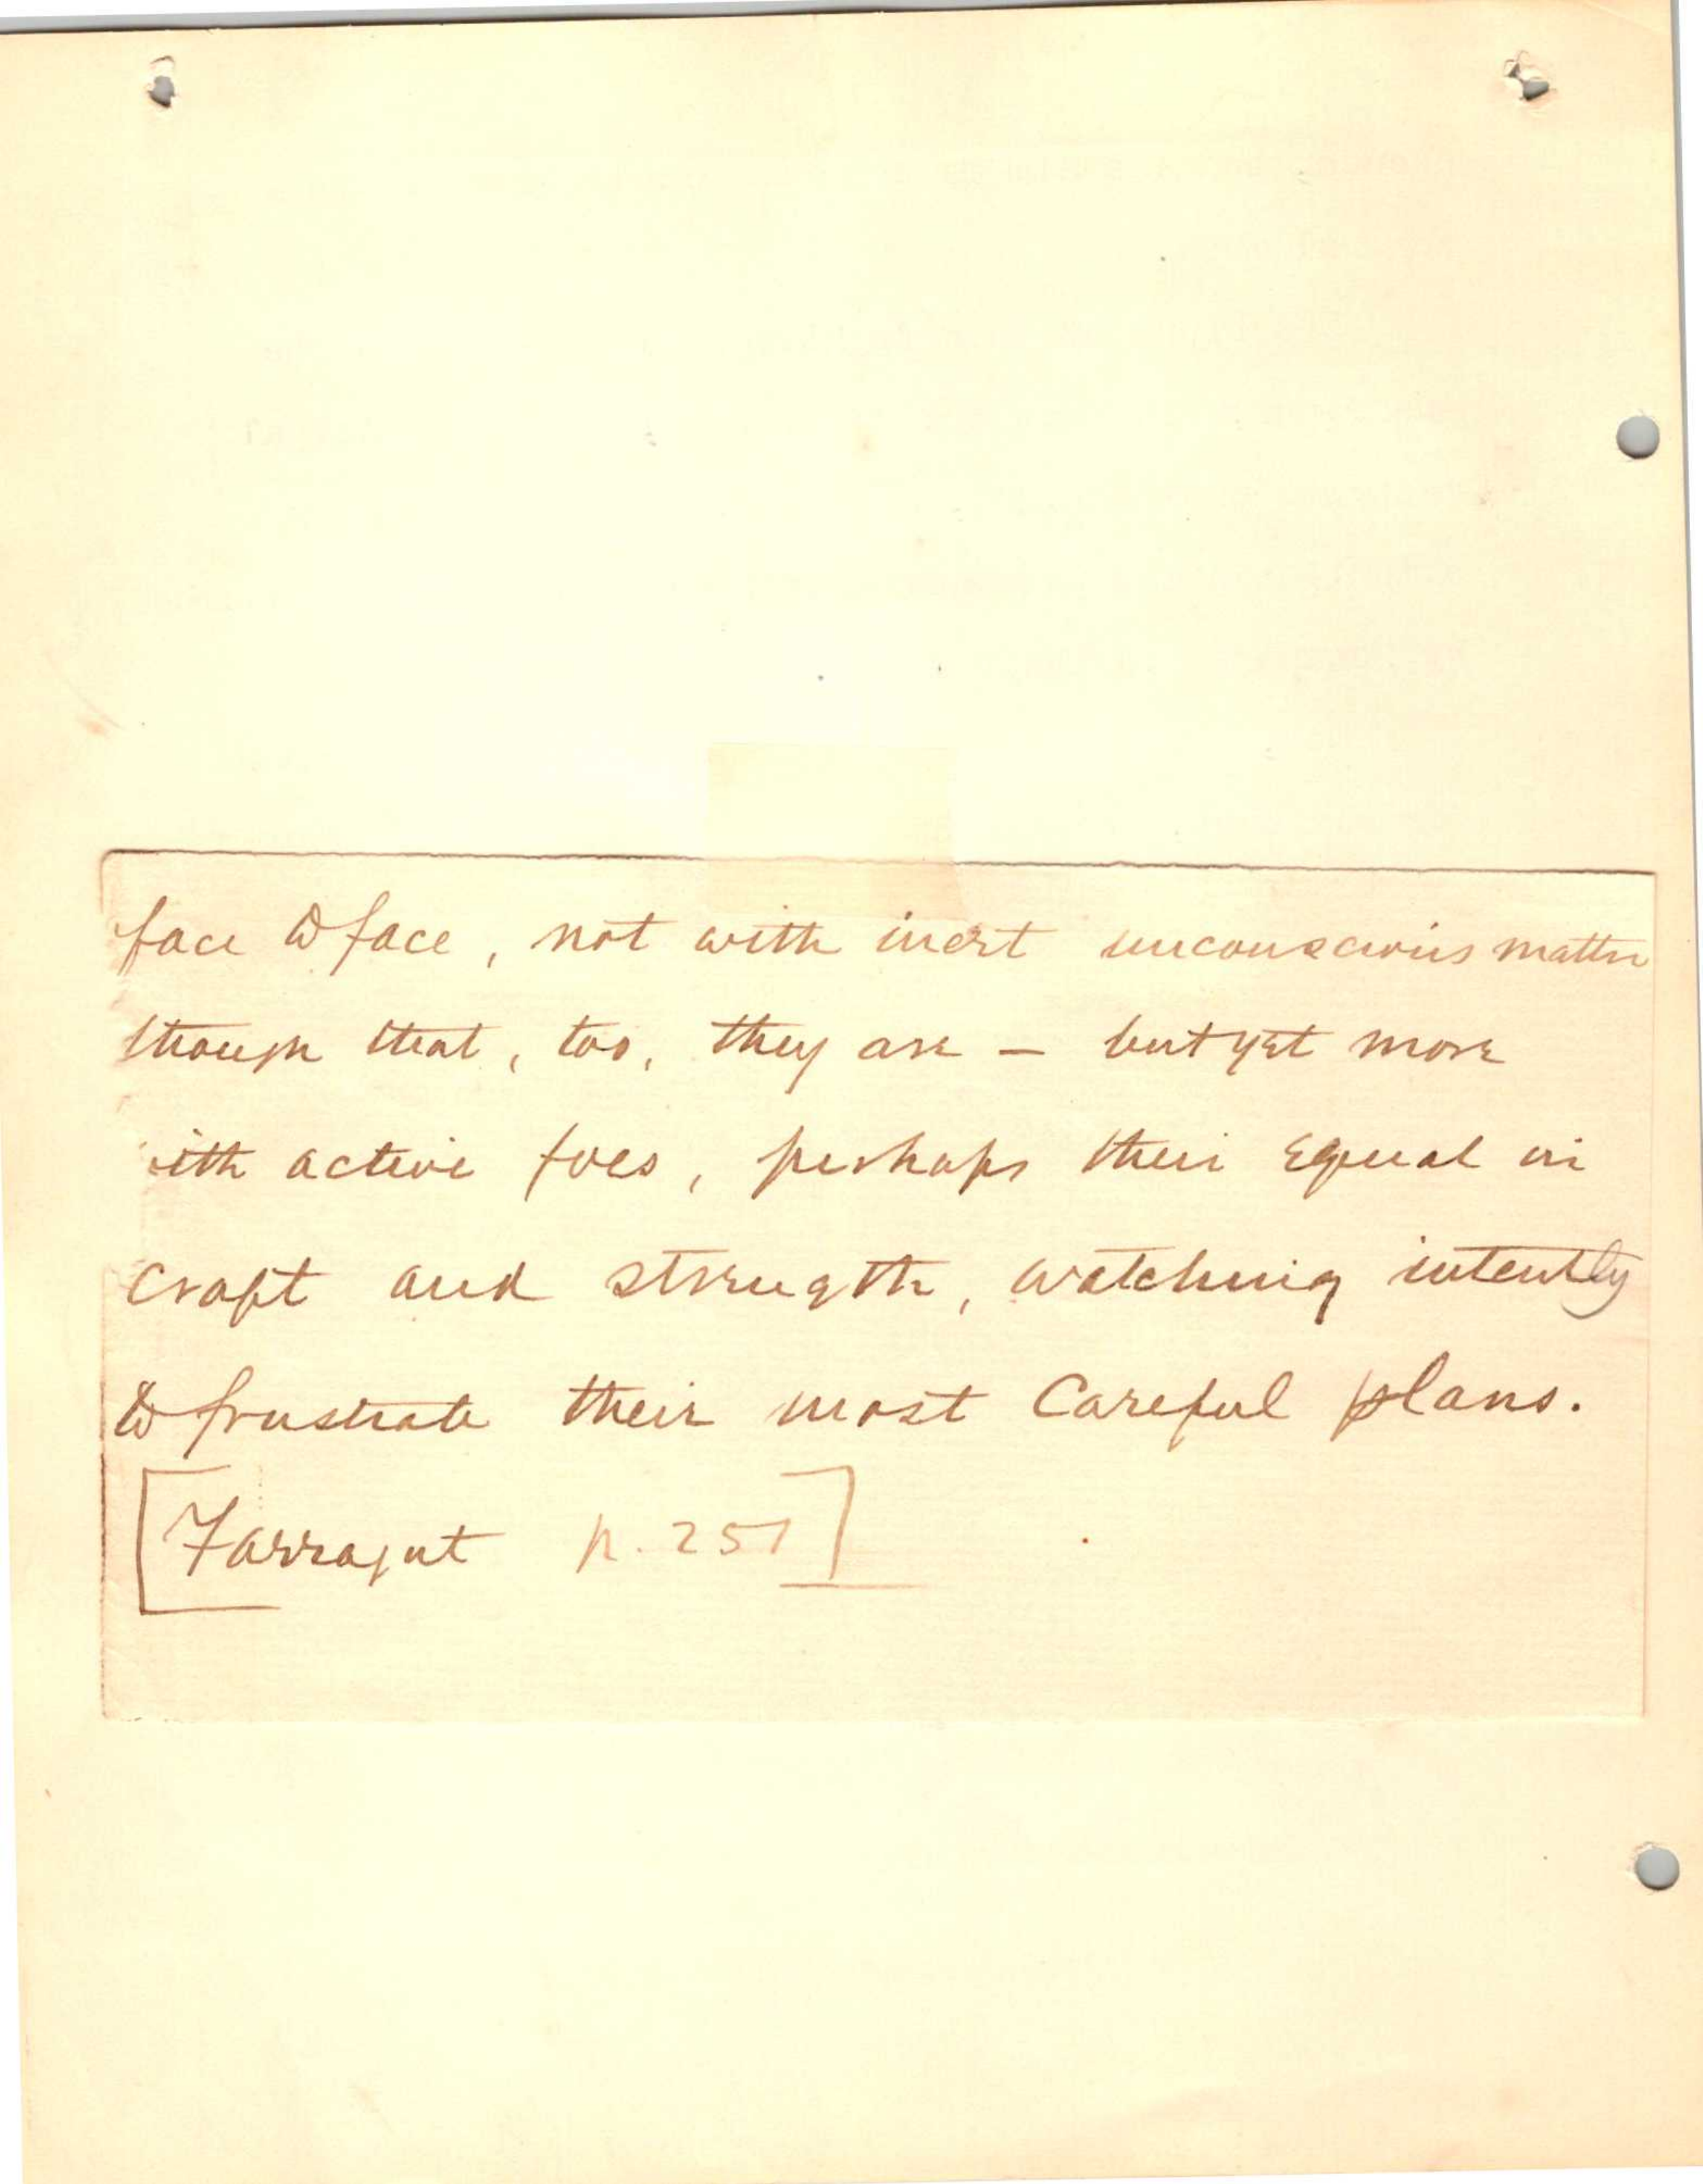 face to face, not with inert unconscious matter
though that, too, they are – but yet more
ith active foes, perhaps their equal in
craft and strength, watching intently
to frustrate their most careful plans.
[Farragut p. 257]